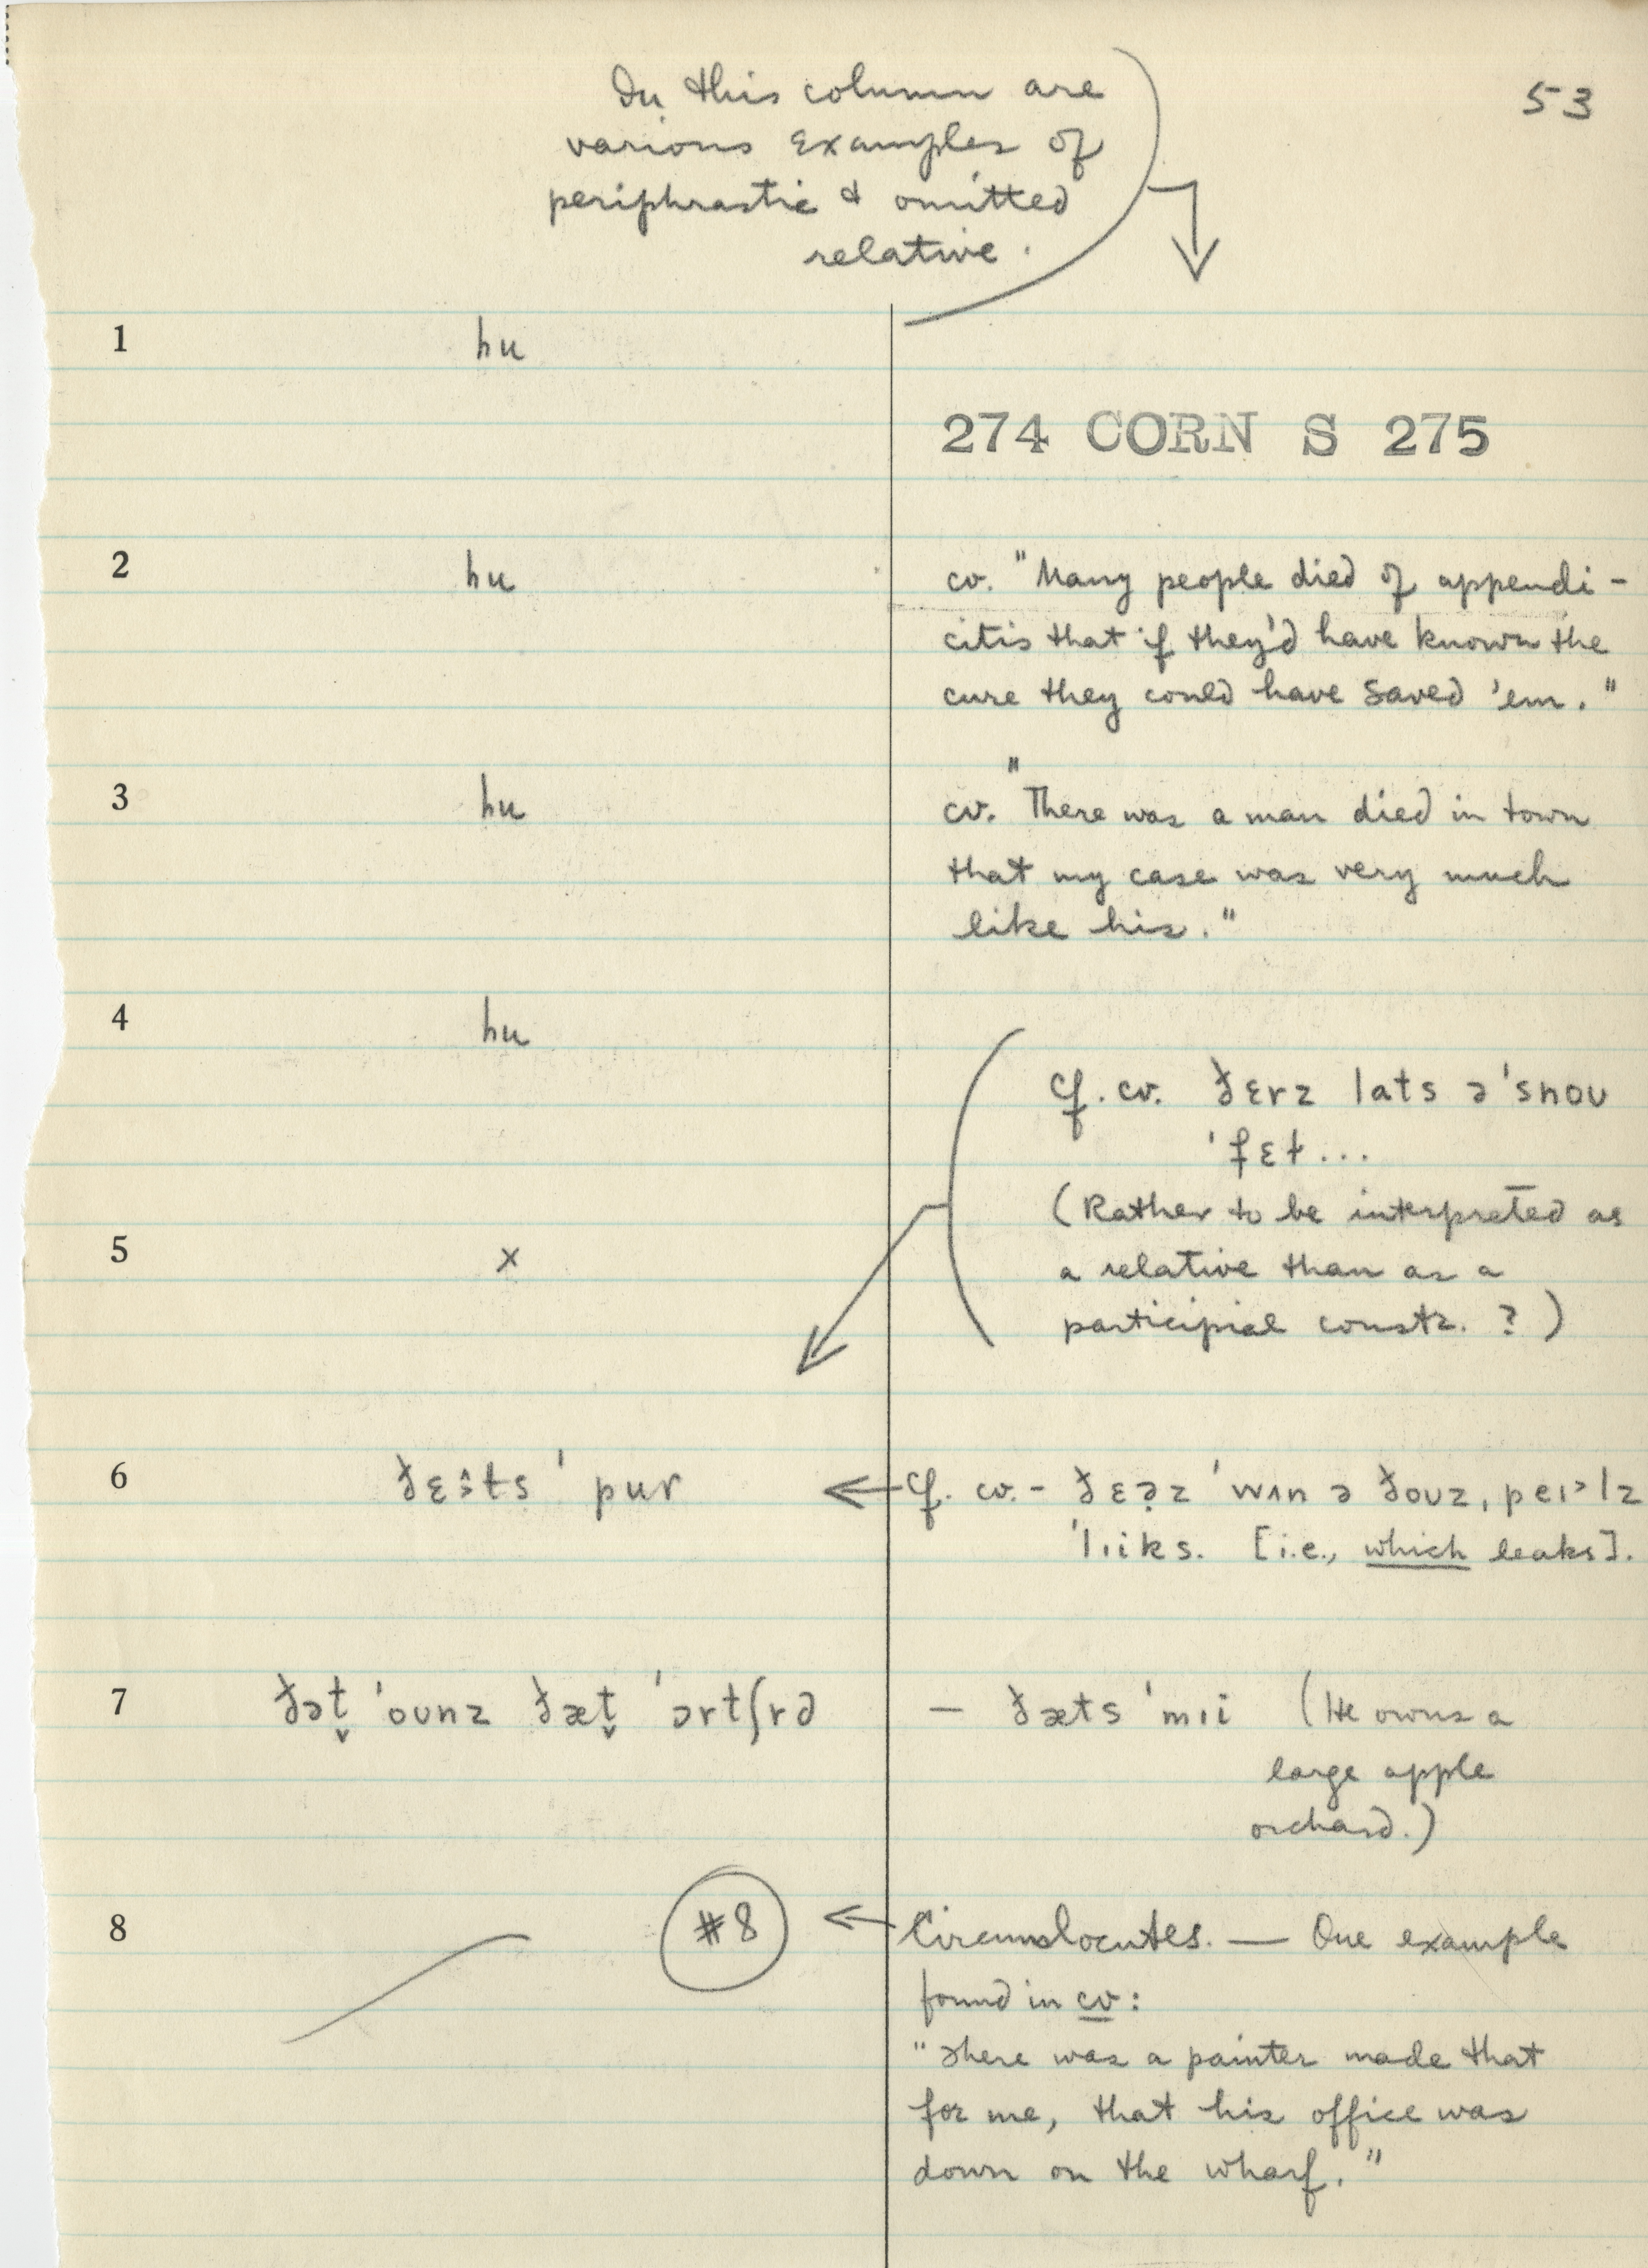 53
In this column are
various examples of
periphrastic & omitted
relative.
1 hu
274 CORN S 275
2 hu cv. "Many people died of appendi-
citis that if they'd have known the
cure they could have saved 'em."
3 hu cv. "There was a man died in town
that my case was very much
like his."
4 hu
cf. cv. ðɛrz lats ə ˈsnoʊ
ˈfɛɫ...
(Rather to be interpreted as
5 x
a relative than as a
participial constr. ?)
6 ˈpur cf. cv. - ˈwʌn ə ðoʊz
ˈlɪiks. [i.e., which leaks].
7 ðət̬ ˈoʊnz ðæt̬ ˈɔrtʃrd – ðæts ˈmɪi (He owns a
large apple
orchard.)
8 #8 Circumlocutes. — One example
found in cv:
"There was a painter made that
for me, that his office was
down on the wharf."